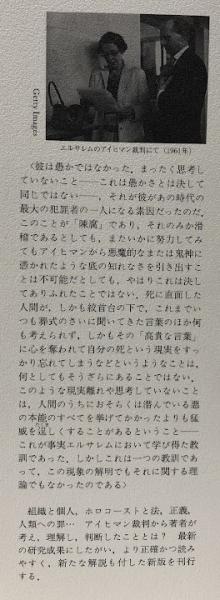 Getty Images
エルサレムのアイヒマン裁判にて(1961年)
〈彼は愚かではなかった。まったく思考し
ていないこと――これは愚かさとは決して
同じではない――、それが彼があの時代の
最大の犯罪者の一人になる素因だったのだ。
このことが「陳腐」であり、それのみか滑
稽であるとしても、またいかに努力してみ
てもアイヒマンから悪魔的なまたは鬼神に
憑かれたような底の知れなさを引き出すこ
とは不可能だとしても、やはりこれは決し
てありふれたことではない。死に直面した
人間が、しかも絞首台の下で、これまでい
つも葬式のさいに聞いてきた言葉のほか何
も考えられず、しかもその「高貴な言葉」
に心を奪われて自分の死という現実をすっ
かり忘れてしまうなどというようなことは、
何としてもそうざらにあることではない。
このような現実離れや思考していないこと
は、人間のうちにおそらくは潜んでいる悪
の本能のすべてを挙げてかかったよりも猛
威を逞しくすることがあるということ――
これが事実エルサレムにおいて学び得た教
訓であった。しかしこれは一つの教訓であ
って、この現象の解明でもそれに関する理
論でもなかったのである〉
組織と個人、ホロコーストと法、正義、
人類への罪… アイヒマン裁判から著者が
考え、理解し、判断したこととは? 最新
の研究成果にしたがい、より正確かつ読み
やすく、新たな解説も付した新版を刊行
する。